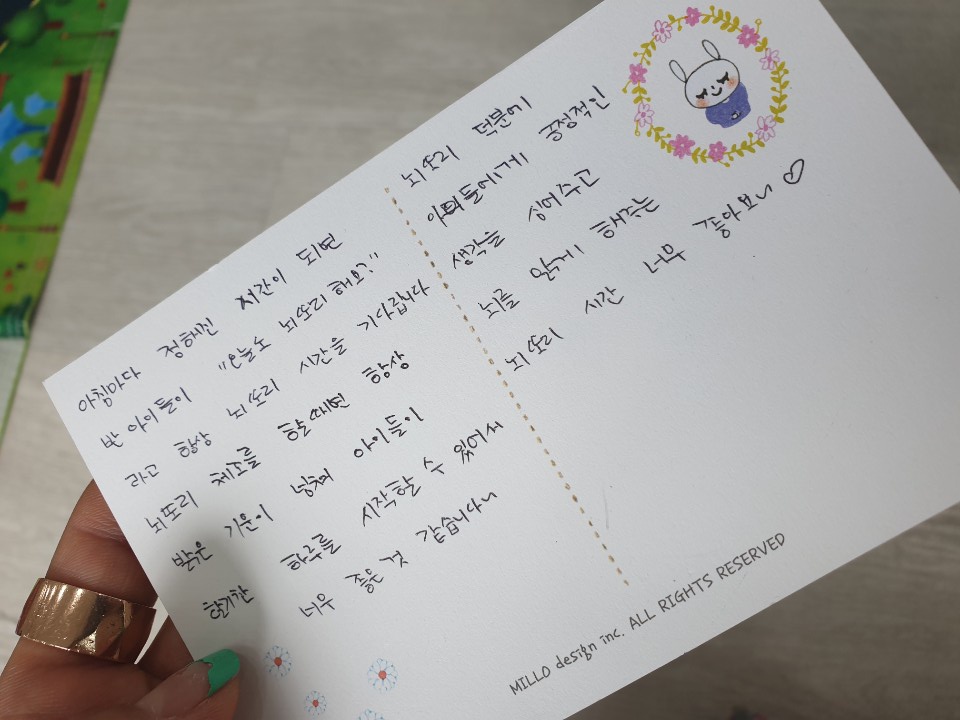 아침마다 정해진 시간이 되면
반 아이들이 "오늘도 뇌또리 해요?"
라고 항상 뇌또리 시간을 기다립니다
뇌또리 체조를 할때면 항상
밝은 기운이 넘쳐 아이들이
활기찬 하루를 시작할 수 있어서
너무 좋은 것 같습니다~
뇌또리 덕분에
아이들에게 긍정적인
생각을 심어주고
뇌를 맑게 해주는
뇌또리 시간 너무 좋아보~ ♡
MILLO design inc. ALL RIGHTS RESERVED